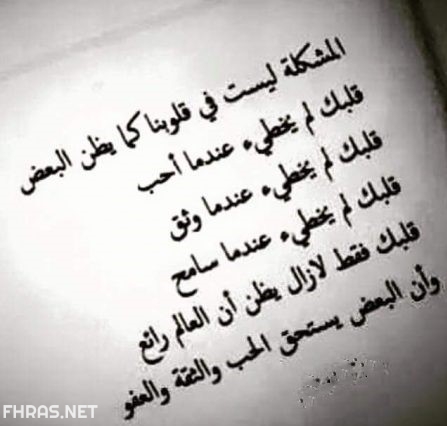 المشكلة ليست في قلوبنا كما يظن البعض
قلبك لم يخطيء عندما أحب
قلبك لم يخطيء عندما وثق
قلبك لم يخطيء عندما سامح
قلبك فقط لازال يظن أن العالم رائع
وأن البعض يستحق الحب والثقة والعفو
FHRAS.NET